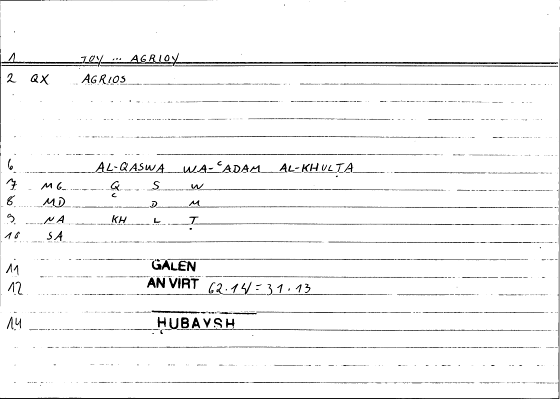 1 TOY ... AGRIOY
2 QX AGRIOS
6 AL-QASWA WA-ʿADAM AL-KHULṬA
7 MG Q S W
8 MD ʿ D M
9 NA KH L Ṭ
10 SA
11 GALEN
12 AN VIRT 62.14 = 31.13
14 ḤUBAYSH